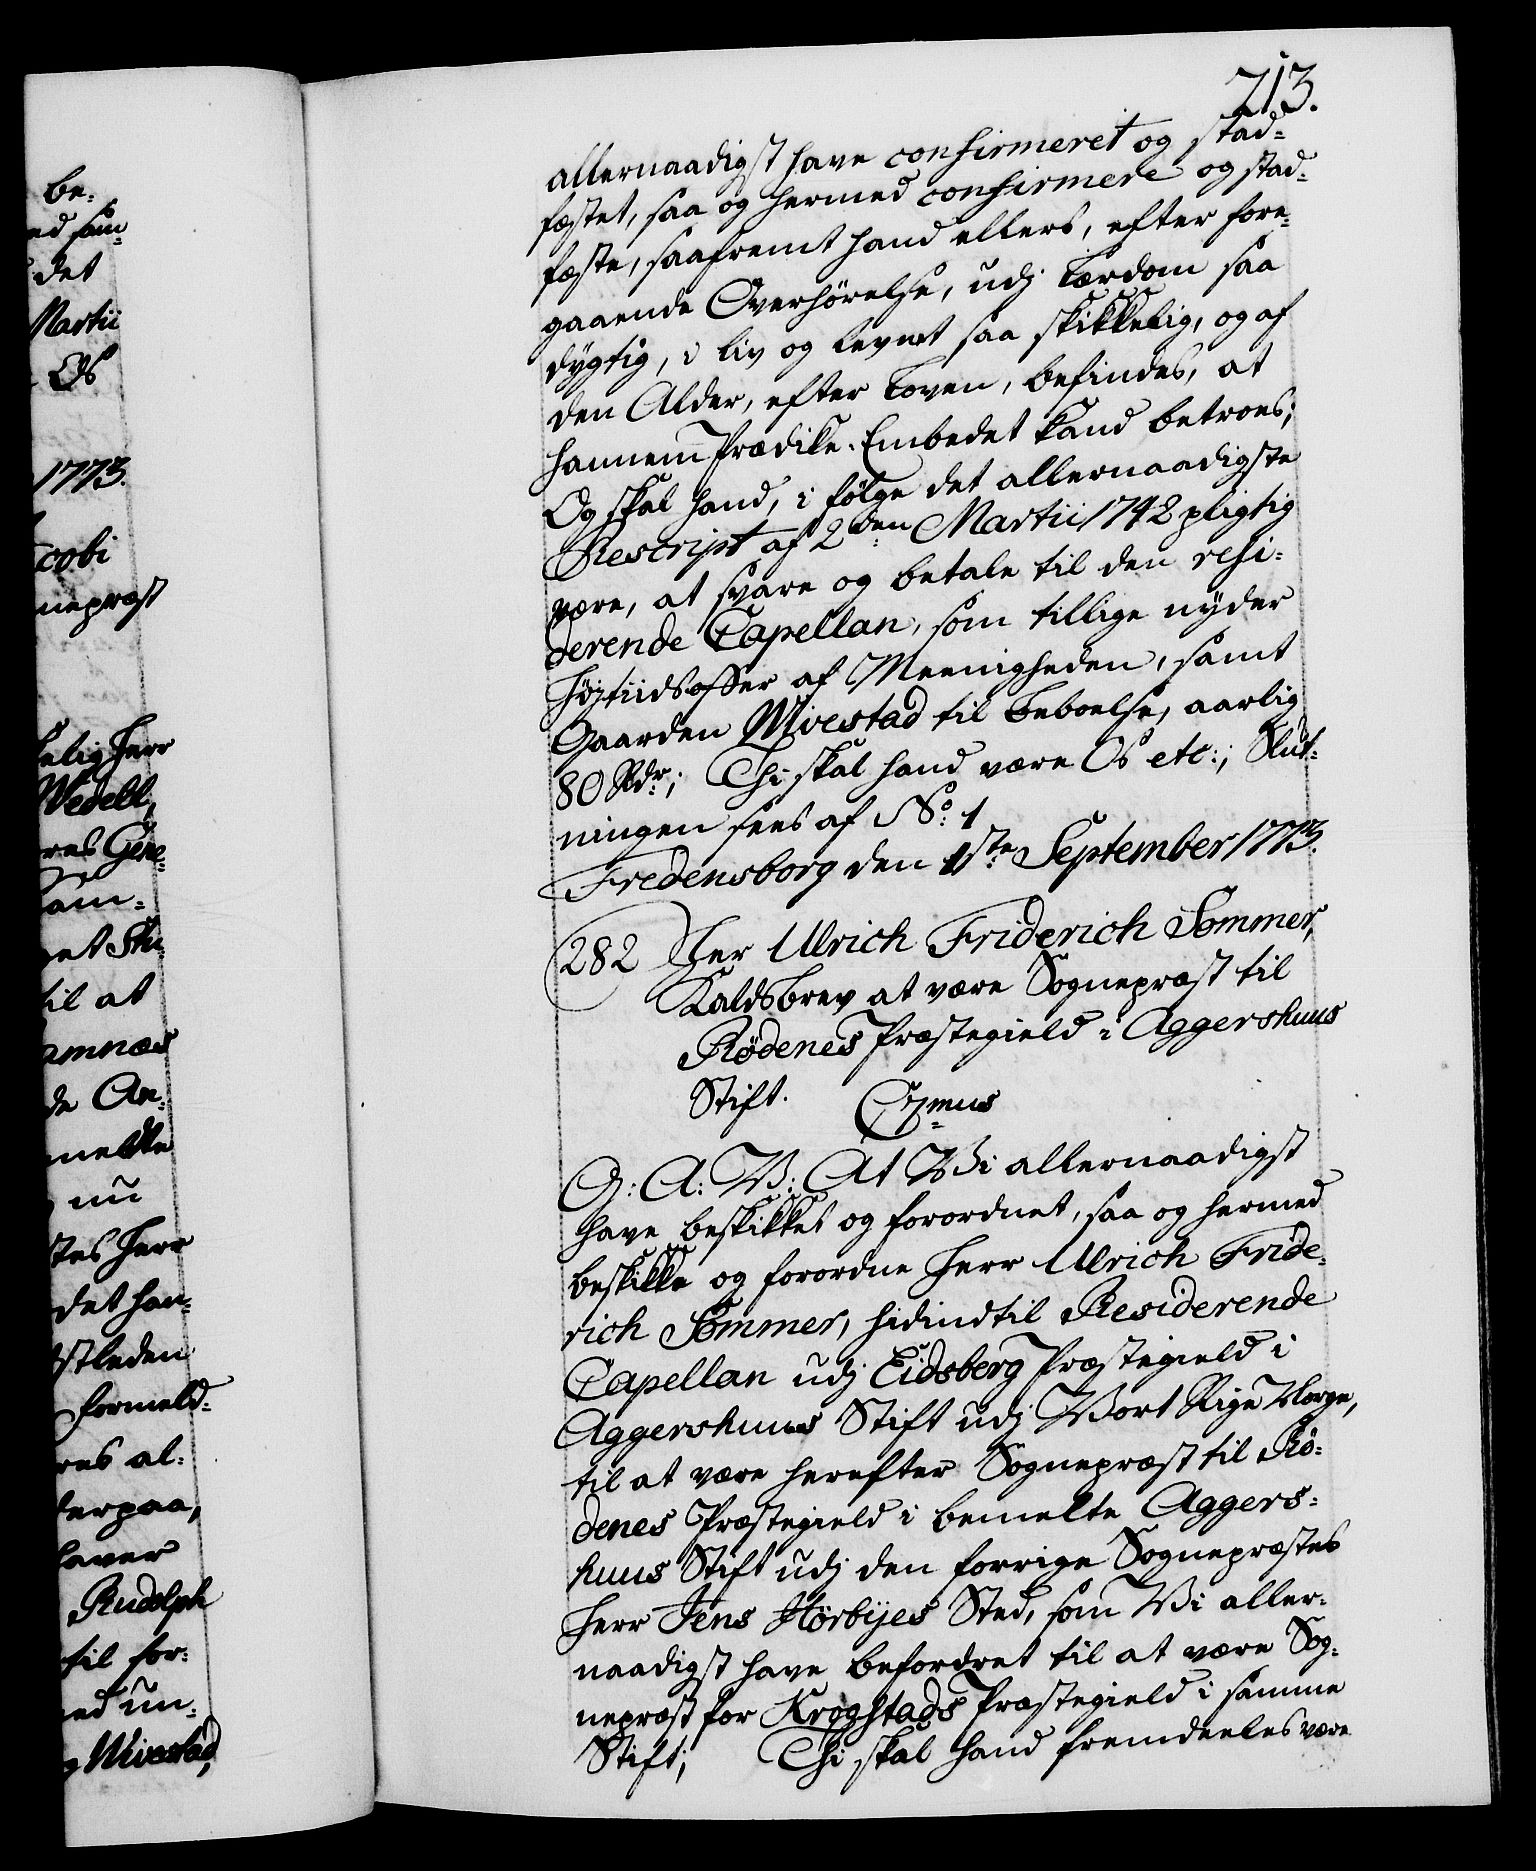 213.
allernaadigst have confirmeret og stad-
fæstet, saa og hermed confirmere og stad-
fæste, saafremt hand ellers, efter fore-
gaaende Overhörelse, udj Lærdom saa
dygtig, i liv og levnet saa skikkelig, og af
den Alder, efter Loven, befindes, at
hannem Prædike-Embedet kand betroes;
Og skal hand, i fölge det allernaadigste
Rescript af 2den Martii 1742 pligtig
være, at svare og betale til den resi-
derende Capellan, som tillige nÿder
Højtiidsoffer af Meenigheden, samt
Gaarden Mivestad til Beboelse, aarlig
80 Rdr; Thi skal hand være Os etc:; Slut-
ningen sees af No: 1
Fredensborg den 1ste September 1773.
282 Her Ulrich Friderich Sommer,
Kaldsbrev at være Sognepræst til
Rödenes Præstegield i Aggershuus
Stift.
G: A: V: At Vi allernaadigst
have beskikket og forordnet, saa og hermed
beskikke og forordne Herr Ulrich Fride-
rich Sommer, hidindtil Residerende
Capellan udj Eidsberg Præstegield i
Aggershuus Stift udj Vort Rige Norge,
til at være herefter Sognepræst til Rö-
denes Præstegield i bemelte Aggers-
huus Stift udj den forrige Sognepræstes
Herr Jens Hörbÿes Sted, som Vi aller-
naadigst have befordret til at være Sog-
nepræst for Krogstads Præstegield i samme
Stift; Thi skal hand fremdeeles være
be-
det
Martii
Os
1773.
Wedell,
til at
nu
det han-
formeld-
Rudolph
til for-
Mivestad,